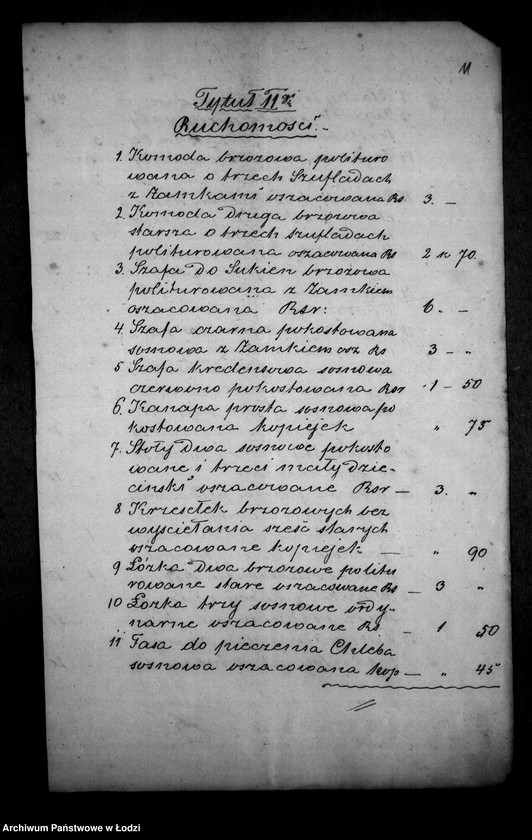 11
Tytuł II gi
Ruchomości.
1. Komoda brzozowa polituro
wana o trzech Szufladach
z Zamkami oszacowana Rs 3. —
2. Komoda druga brzozowa
starsza o trzech szufladach
politurowana oszacowana Rs 2 k 70.
3. Szafa do Sukien brzozowa
politurowana z Zamkiem
oszacowana Rsr: 6. —
4. Szafa czarna pokostowana
sosnowa z Zamkiem osz Rs 3 — "
5 Szafa kredensowa sosnowa
czerwono pokostowana Rsr 1 — 50
6. Kanapa prosta sosnowa po
kostowana kopiejek " 75
7. Stoły dwa sosnowe pokosto
wane i trzeci mały dzie-
cinski oszacowane Rsr — 3. "
8 Krzesełek brzozowych bez
wyscielania sześć starych
oszacowane kopiejek — " 90
9 Łóżka dwa brzozowe politu
rowane stare oszacowane Rs — 3 "
10 Łozka trzy sosnowe ordy-
narne oszacowane Rs — 1 50
11 Fasa do pieczenia Chleba
sosnowa oszacowana kop — " 45
Archiwum Państwowe w Łodzi